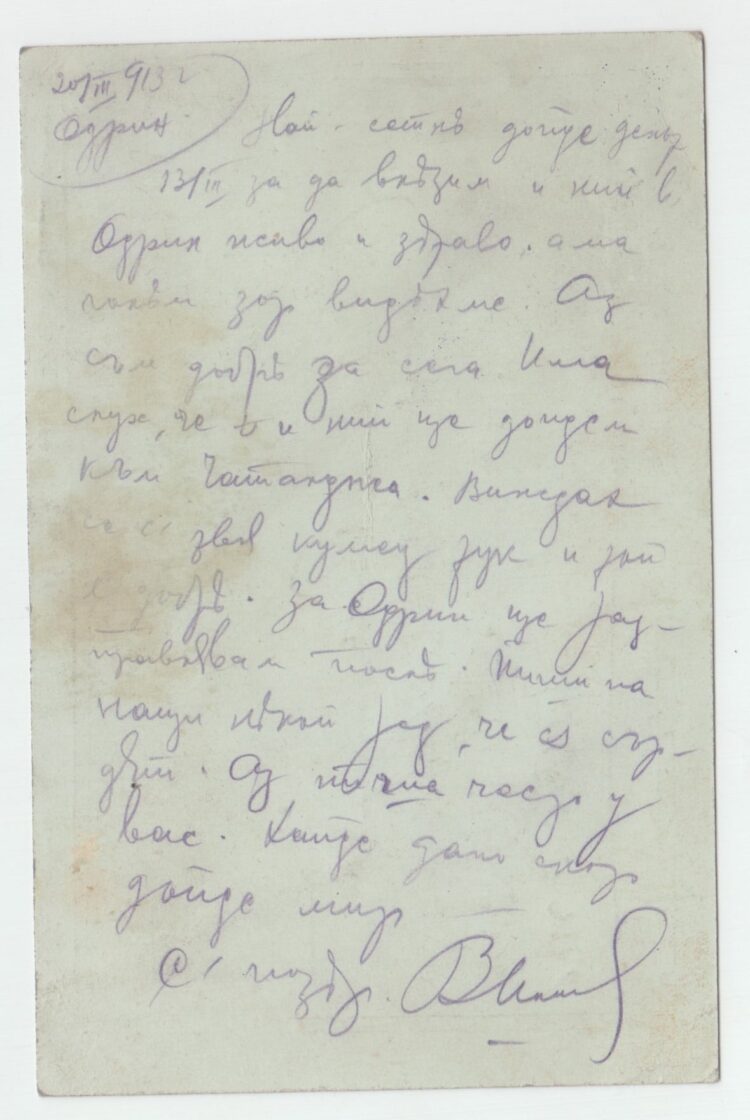 20/III 913 г
Одрин. Най-сетнѣ дойде денът
13/III за да влѣзим и ний в
Одрин живо и здраво, ама
голѣм зор видѣхме. Аз
съм добрѣ за сега Има
слух, че и ний ще дойдем
към Чаталджа. Виждах
и
добрѣ. За Одрин ще раз-
правявам послѣ. Пиши на
наши нѣкой ред, че са сър-
дѣти. Аз пича често у
вас. Хайде дано скор
дойде мир
С поздр.